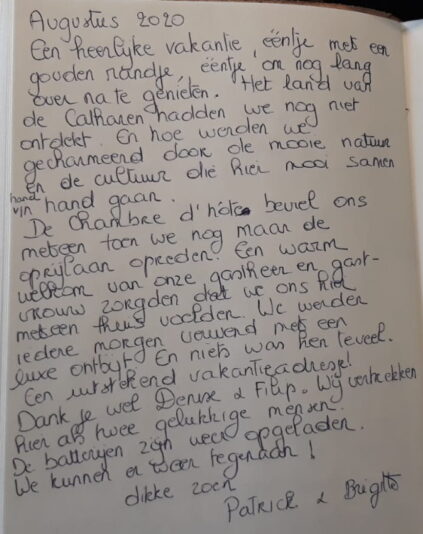 Augustus 2020
Een heerlijke vakantie, ééntje met een
gouden randje, ééntje om nog lang
over na te genieten. Het land van
de Catharen hadden we nog niet
ontdekt. En hoe werden we
gecharmeerd door de mooie natuur
en de cultuur die hier mooi samen
hand in hand gaan.
De chambre d'hôte beviel ons
meteen toen we nog maar de
oprijlaan opreden. Een warm
welkom van onze gastheer en gast-
vrouw zorgden dat we ons hier
meteen thuis voelden. We werden
iedere morgen verwend met een
luxe ontbijt. En niets was hen teveel.
Een uitstekend vakantieadresje!
Dank je wel Denise & Filip. Wij vertrekken
hier als twee gelukkige mensen.
De batterijen zijn weer opgeladen.
We kunnen er weer tegenaan!
dikke zoen
Patrick & Brigitte